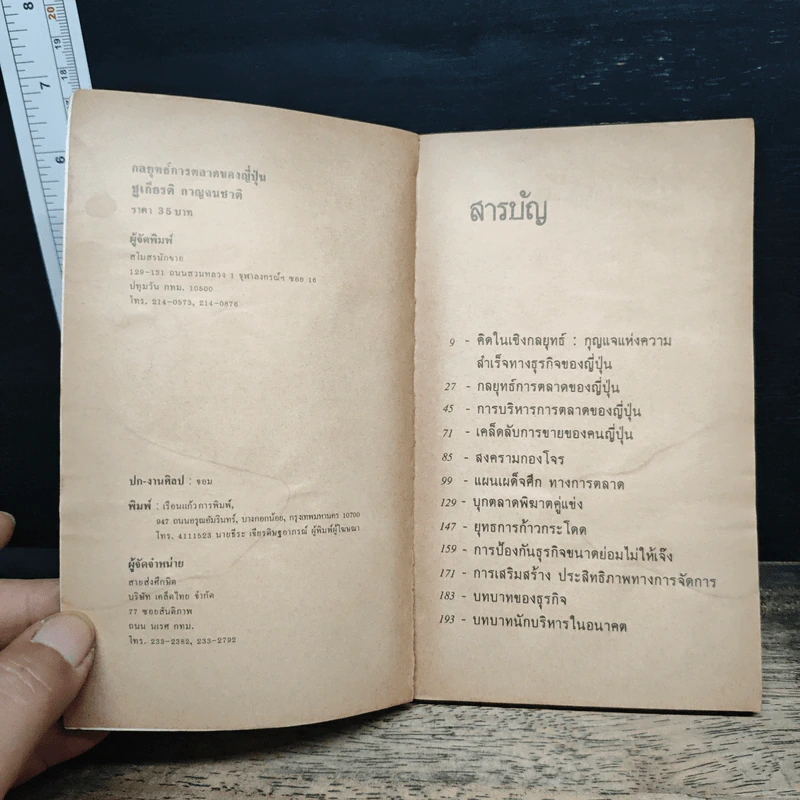 กลยุทธ์การตลาดของญี่ปุ่น
ชูเกียรติ กาญจนชาติ
ราคา 35 บาท
ผู้จัดพิมพ์
สโมสรนักขาย
129-131 ถนนสวนหลวง 1 จุฬาลงกรณ์ฯ ซอย 16
ปทุมวัน กทม. 10500
โทร. 214-0573, 214-0876
ปก-งานศิลป : จอม
พิมพ์ : เรือนแก้วการพิมพ์,
947 ถนนอรุณอัมรินทร์, บางกอกน้อย, กรุงเทพมหานคร 10700
โทร. 4111523 นายธีระ เจียรดิษฐอาภรณ์ ผู้พิมพ์ผู้โฆษณา
ผู้จัดจำหน่าย
สายส่งศึกษิต
บริษัท เคล็ดไทย จำกัด
77 ซอยสันติภาพ
ถนน นเรศ กทม.
โทร. 233-2382, 233-2792
สารบัญ
9 - คิดในเชิงกลยุทธ์ : กุญแจแห่งความ
สำเร็จทางธุรกิจของญี่ปุ่น
27 - กลยุทธ์การตลาดของญี่ปุ่น
45 - การบริหารการตลาดของญี่ปุ่น
71 - เคล็ดลับการขายของคนญี่ปุ่น
85 - สงครามกองโจร
99 - แผนเผด็จศึก ทางการตลาด
129 - บุกตลาดพิฆาตคู่แข่ง
147 - ยุทธการก้าวกระโดด
159 - การป้องกันธุรกิจขนาดย่อมไม่ให้เจ๊ง
171 - การเสริมสร้าง ประสิทธิภาพทางการจัดการ
183 - บทบาทของธุรกิจ
193 - บทบาทนักบริหารในอนาคต
8
7
6
20
19
18